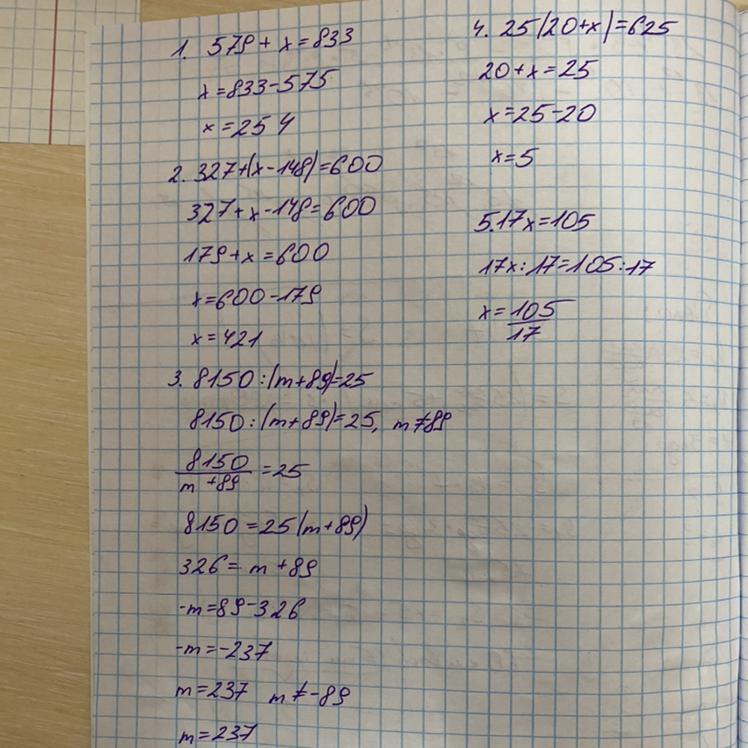 1. 579 + x = 833
x = 833 - 575
x = 254
2. 327 + (x - 148) = 600
327 + x - 148 = 600
179 + x = 600
x = 600 - 179
x = 421
3. 8150 : (m + 89) = 25
8150 : (m + 89) = 25, m ≠ 89
8150
m + 89 = 25
8150 = 25(m + 89)
326 = m + 89
-m = 89 - 326
-m = -237
m = 237 m ≠ -89
m = 237
4. 25(20 + x) = 625
20 + x = 25
x = 25 - 20
x = 5
5. 17x = 105
17x : 17 = 105 : 17
x = 105
17